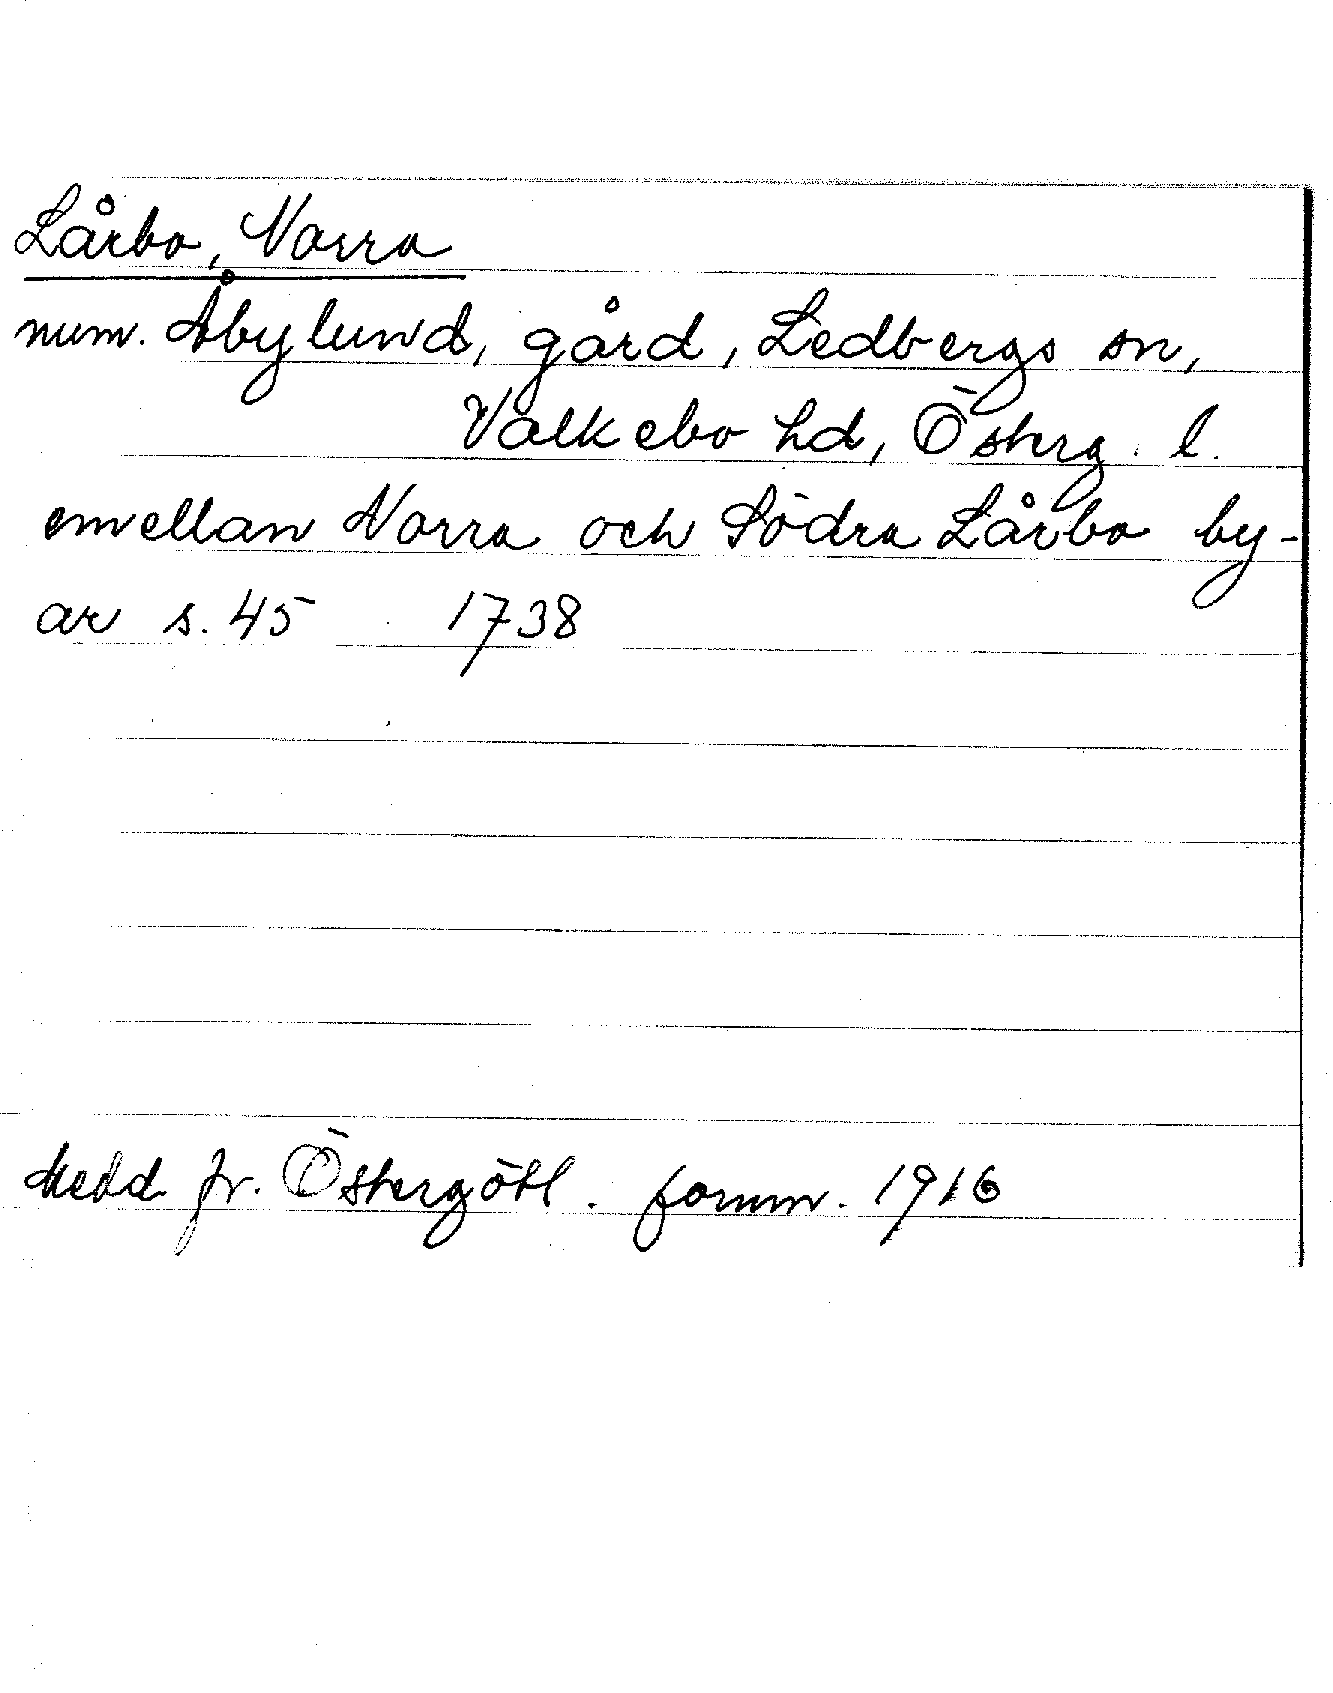 Lårbo, Norra
num. Åbylund, gård, Ledbergs sn,
Valkebo hd, Österg. l.
emellan Norra och Södra Lårbo by-
ar s. 45 1738
Medd fr. Östergötl. fornm. 1916